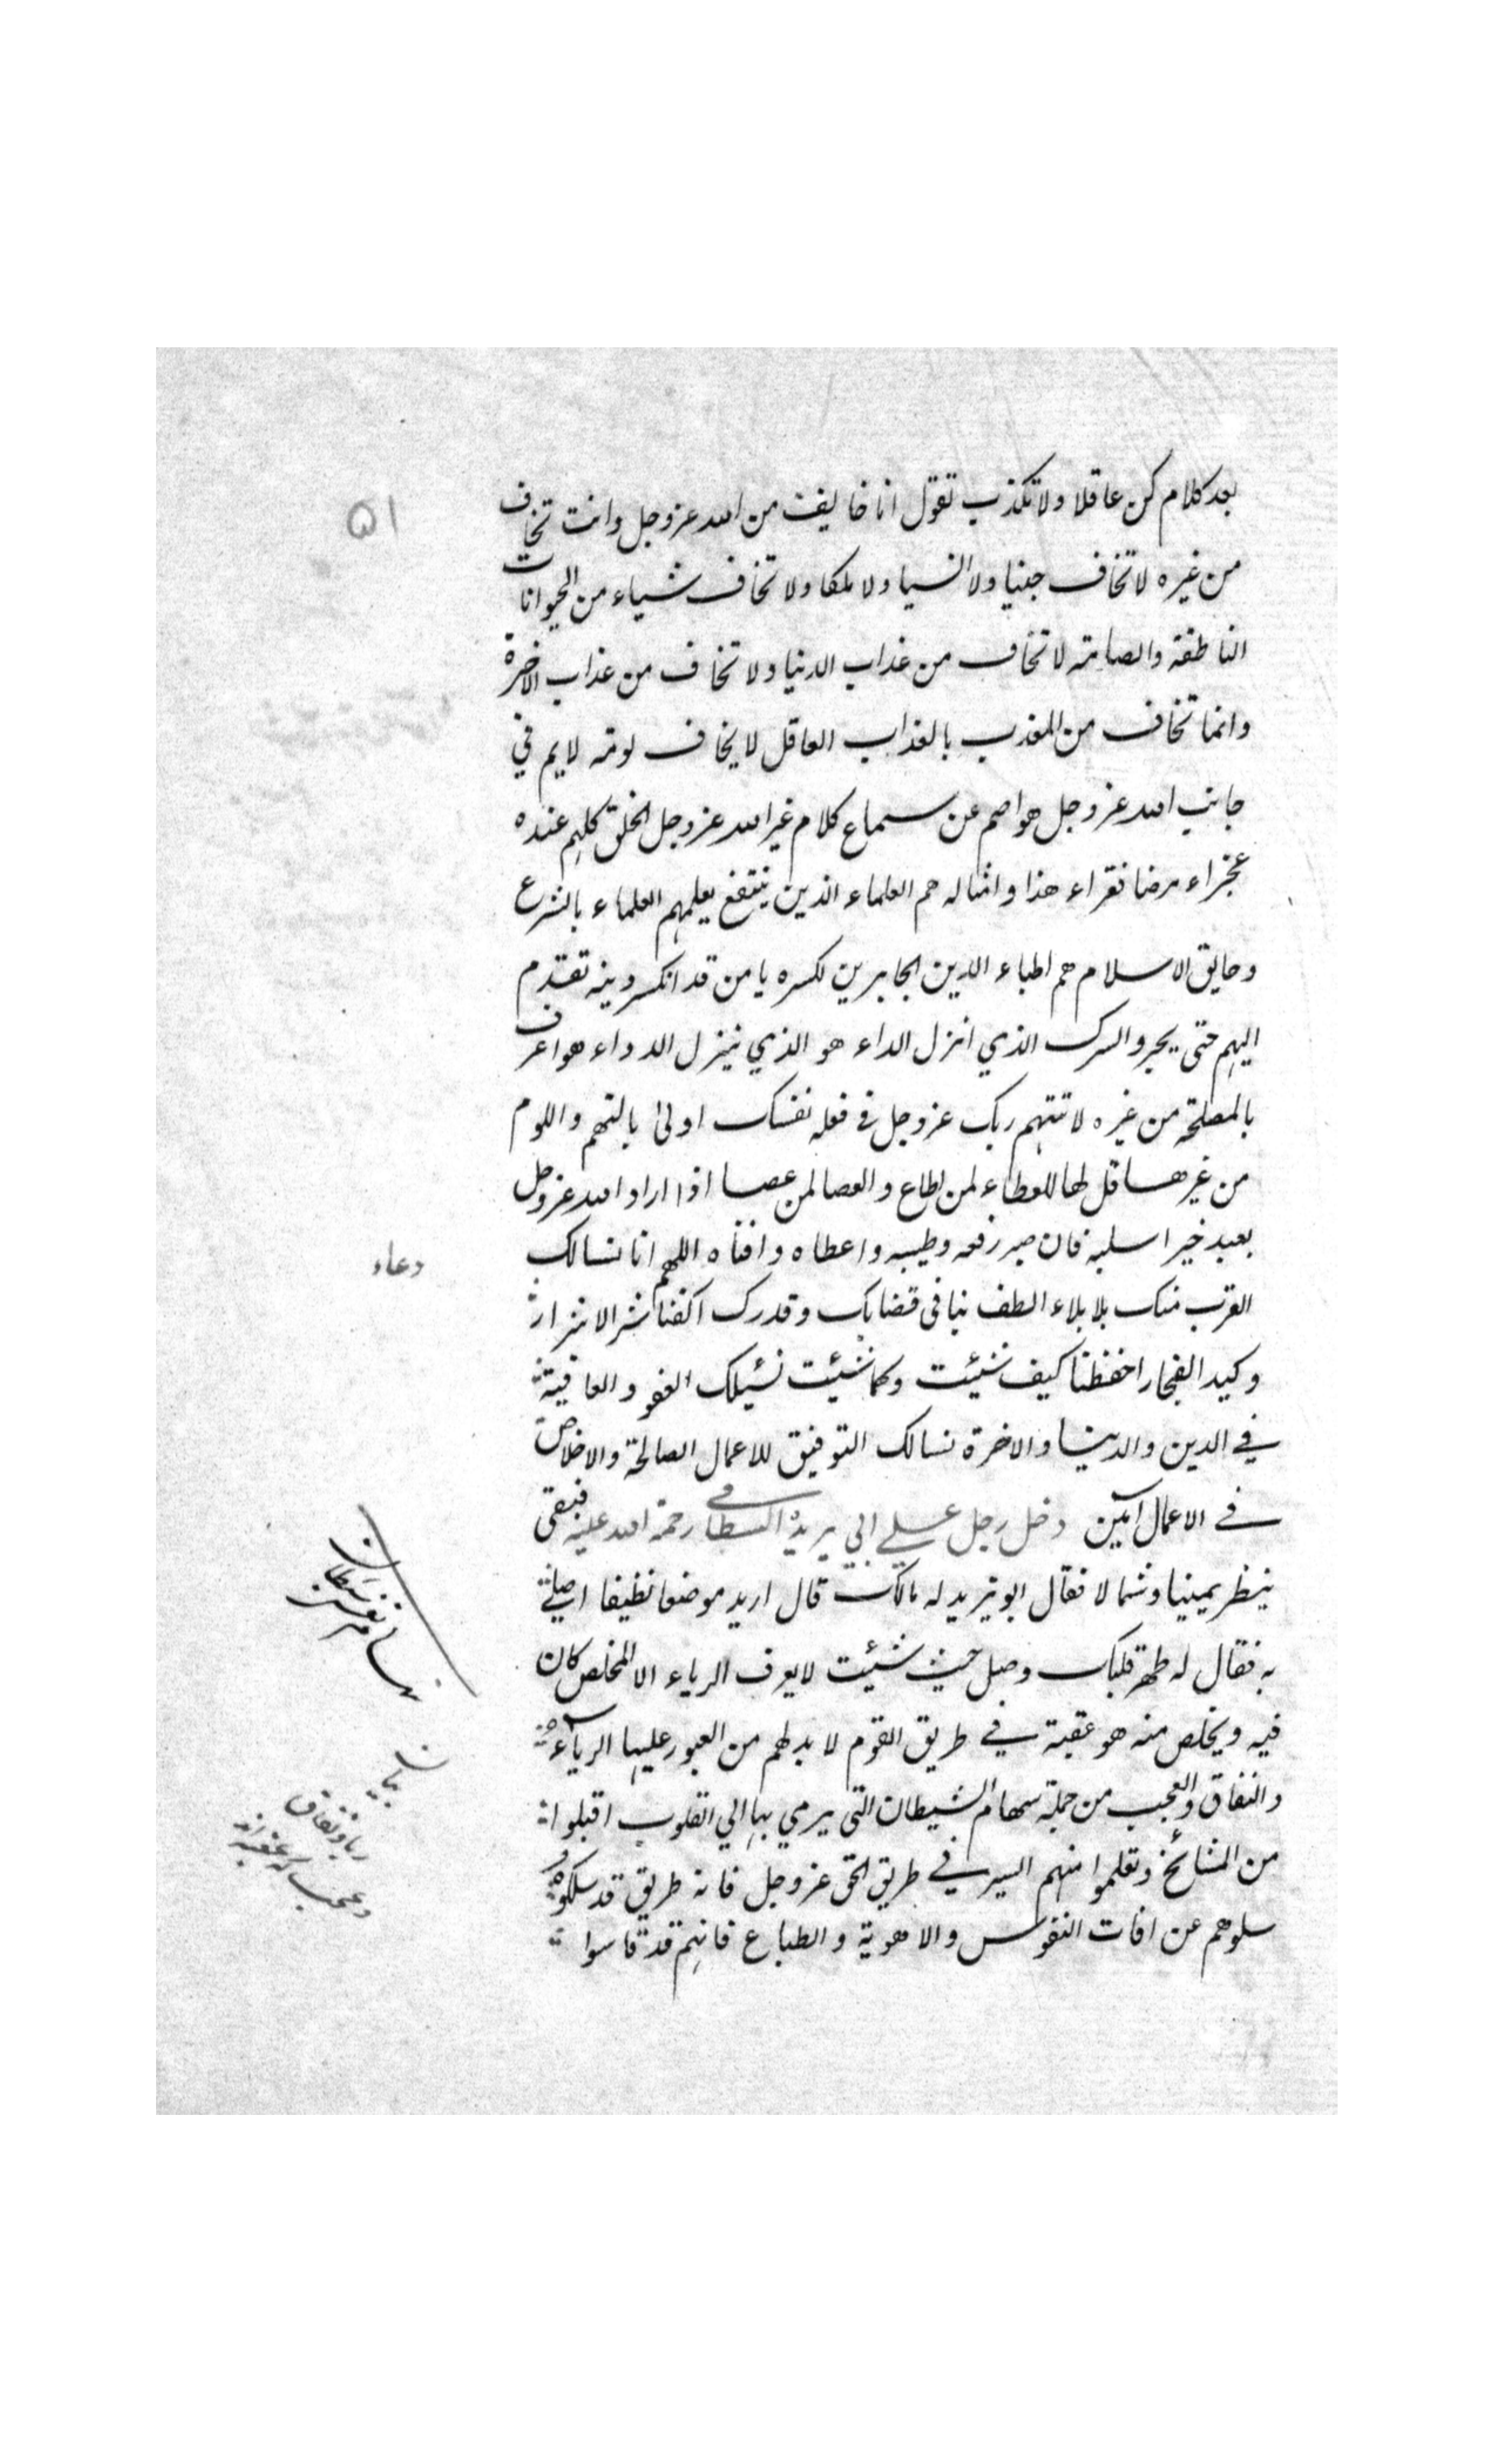 ۵۱
بعد كلام كن عاقلا ولا تكذب تقول انا خايف من الله عز وجل وانت تخاف
من غيره لا تخاف جنيا ولا انسيا ولا ملكا ولا تخاف شياء من الحيوانات
الناطقة والصامته لا تخاف من عذاب الدنيا ولا تخاف من عذاب الاخرة
وانما تخاف من المعذب بالعذاب العاقل لا يخاف لومة لايم في
جانب الله عز وجل هو اصم عن سماع كلام غير الله عز وجل الخلق كلهم عنده
عجزاء مرضا فقراء هذا وامثاله هم العلماء الذين ينتفع بعلمهم العلماء بالشرع
وحايق الاسلام هم اطباء الدين الجابرين لكسره يا من قد انكسر دينه تقدم
اليهم حتى يجبروا كسرك الذي انزل الداء هو الذي ينزل الدواء هو اعرف
بالمصلحة من غيره لا تتهم ربك عز وجل في فعله نفسك اولى بالتهم واللوم
من غيرها قل لها العطاء لمن اطاع والعصا لمن عصا اذا اراد الله عز وجل
بعبد خيرا سلبه فان صبر رفعه وطيبه واعطاه وافناه اللهم انا نسالك
دعاء
القرب منك بلا بلاء الطف بنا في قضايك وقدرك اكفنا شر الاشرار
وكيد الفجار احفظنا كيف شئت وكما شئت نسئلك العفو والعافية
في الدين والدنيا والاخرة نسالك التوفيق للاعمال الصالحة والاخلاص
في الاعمال آمين دخل رجل علي ابي يزيد البسطامي رحمة الله عليه فبقى
ينظر يمينا وشمالا فقال ابو يزيد له مالك قال اريد موضعا نظيفا اصلي
به فقال له طهر قلبك وصل حيث شئت لا يعرف الرياء الا المخلص كان
فيه ويخلص منه هو عقبة في طريق القوم لا بد لهم من العبور عليها الرياء
والنفاق والعجب من جملة سهام الشيطان التى يرمي بها الي القلوب اقبلوا
من المشائخ وتعلموا منهم السير في طريق الحق عز وجل فانه طريق قد سلكوه
سلوهم عن افات النفوس والاهوية والطباع فانهم قد قاسوا
بيان
ريا ونفاق
وعجب كه عقبه اند